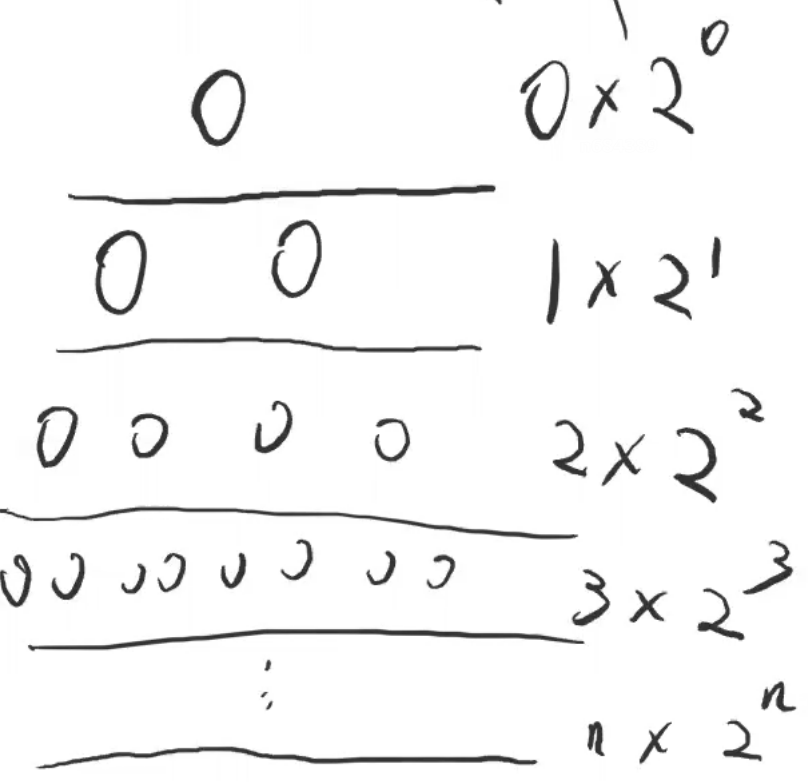 0 0 × 2^0
0 0 1 × 2^1
0 0 0 0 2 × 2^2
0 0 0 0 0 0 0 0 3 × 2^3
⋮
n × 2^n